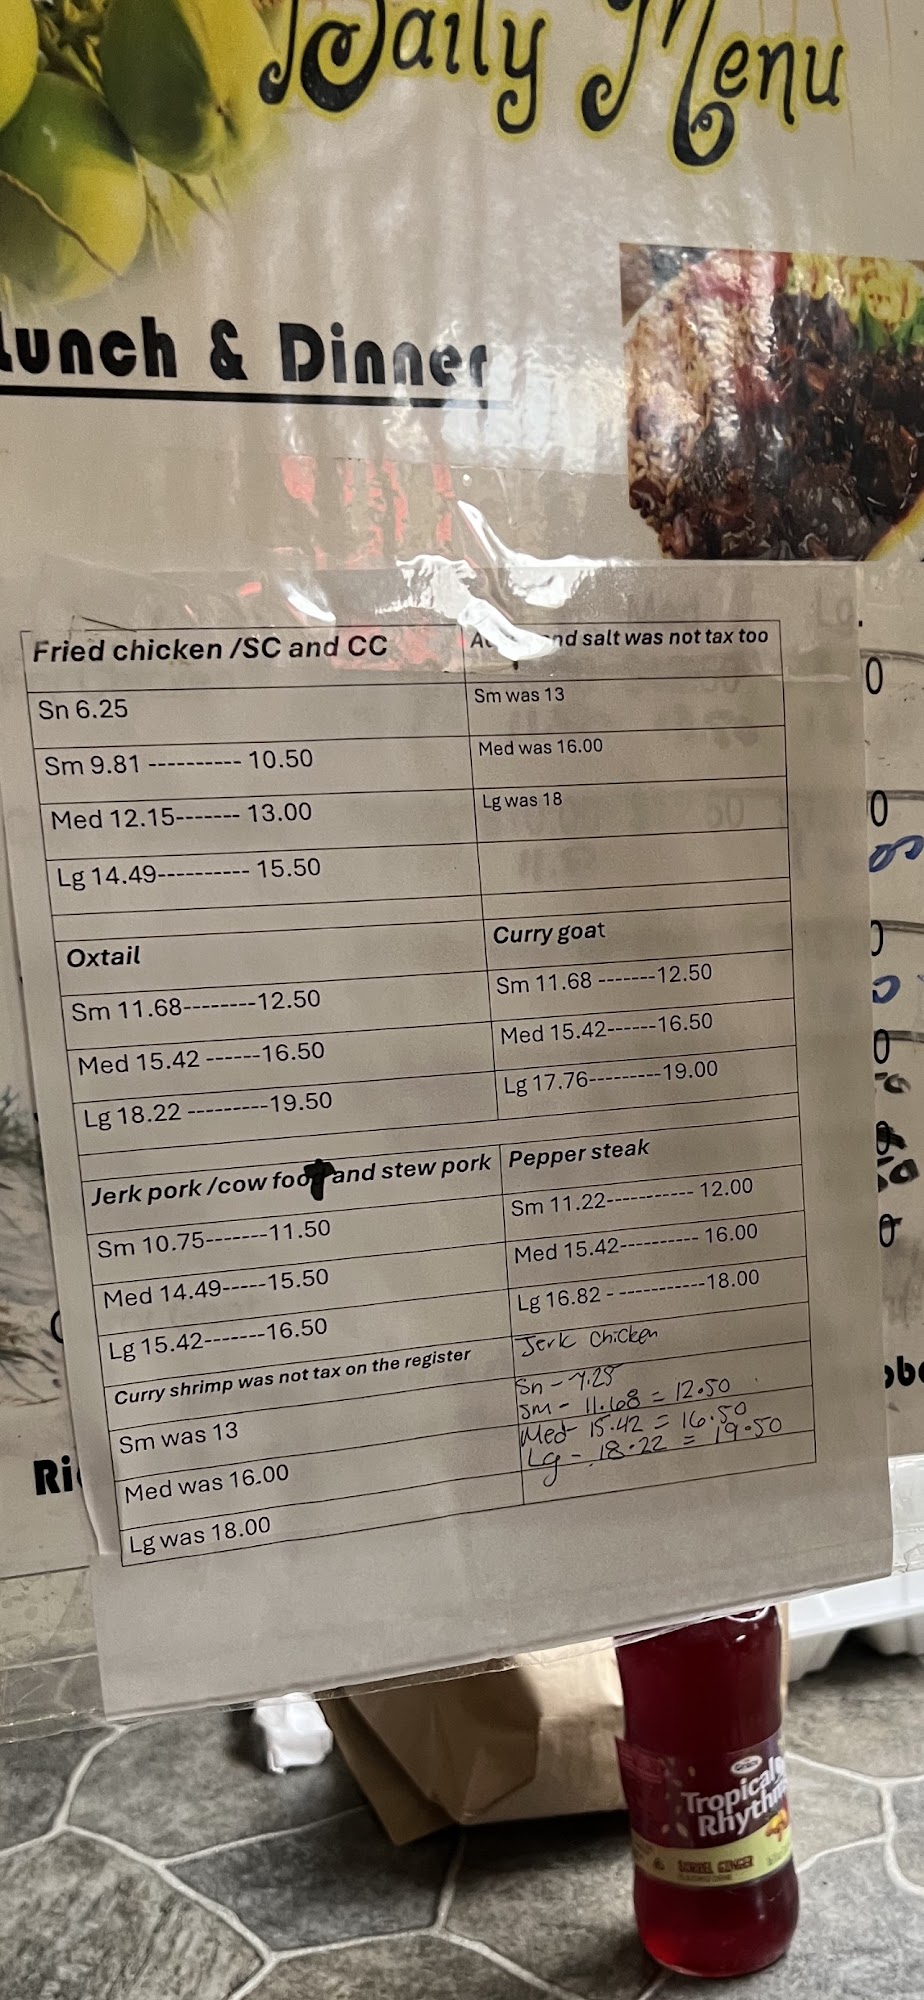 Daily Menu
Lunch & Dinner
Fried chicken /SC and CC
Sn 6.25
Sm 9.81 ---------- 10.50
Med 12.15------- 13.00
Lg 14.49---------- 15.50
salt was not tax too
Sm was 13
Med was 16.00
Lg was 18
Oxtail
Sm 11.68--------12.50
Med 15.42 ------16.50
Lg 18.22 ---------19.50
Curry goat
Sm 11.68 -------12.50
Med 15.42------16.50
Lg 17.76---------19.00
Jerk pork /cow foot and stew pork
Sm 10.75-------11.50
Med 14.49-----15.50
Lg 15.42-------16.50
Curry shrimp was not tax on the register
Sm was 13
Med was 16.00
Lg was 18.00
Pepper steak
Sm 11.22----------- 12.00
Med 15.42---------- 16.00
Lg 16.82 - ------------18.00
Jerk chicken
Sn - 7.25
Sm - 11.68 = 12.50
Med- 15.42 = 16.50
Lg - 18.22 = 19.50
Tropical
Rhythms
SORREL GINGER